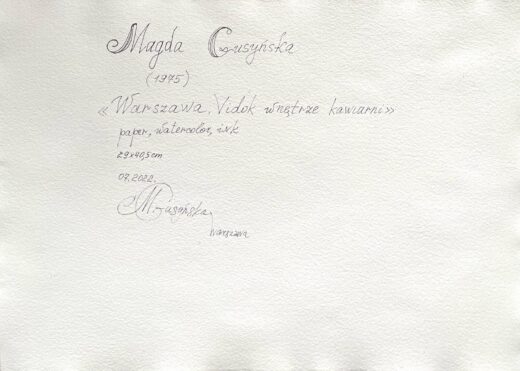 Magda Gusyńska
(1975)
«Warszawa. Vidok wnętrze kawiarni»
paper, watercolor, ink
29x40,5cm
07.2022.
MGusyńska
Warszawa